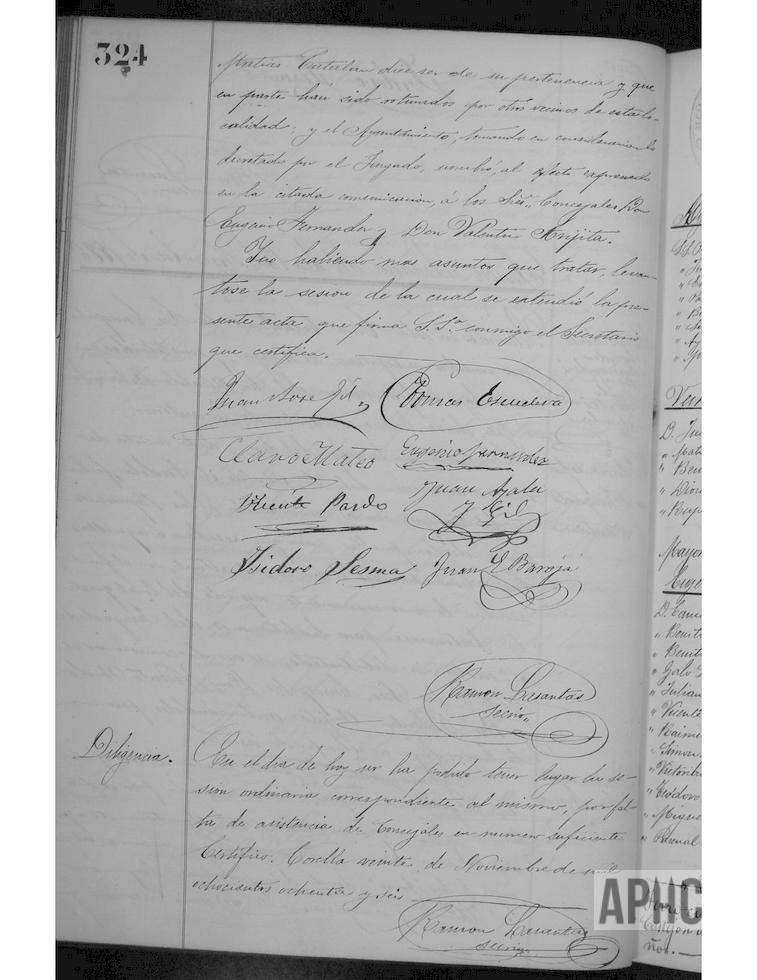 324
Matias Catalan dice ser de su pertenencia y que
en parte han sido roturados por otros vecinos de esta lo-
calidad; y el Ayuntamiento, tomando en consideracion lo
decretado por el Juzgado, nombró, al efecto expresado
en la citada comunicacion, á los Sres. Concejales Don
Eugenio Fernandez y Don Valentin Arijita.
Y no habiendo mas asuntos que tratar, levan-
tose la sesion de la cual se estendió la pre-
sente acta que firma S.Sa. conmigo el Secretario
que certifica.
Juan Jose Gil Tomas Escudero
Claro Mateo Eugenio Fernandez
Vicente Pardo Juan Ayala
y Gil
Isidoro Sesma Juan Baroja
Ramon Lasantas
Secrio.
Diligencia.
En el dia de hoy no ha podido tener lugar la se-
sion ordinaria correspondiente al mismo, por fal-
ta de asistencia de Concejales en numero suficiente.
Certifico. Corella veinte de Noviembre de mil
ochocientos ochenta y seis
Ramon Lasantas
Secrio.
Mayor
D. Cam
" Benit
" Benit
" Galo
" Julian
" Vicente
" Raim
" Simon
" Victori
" Teodoro
" Migue
" Pascual
APHC